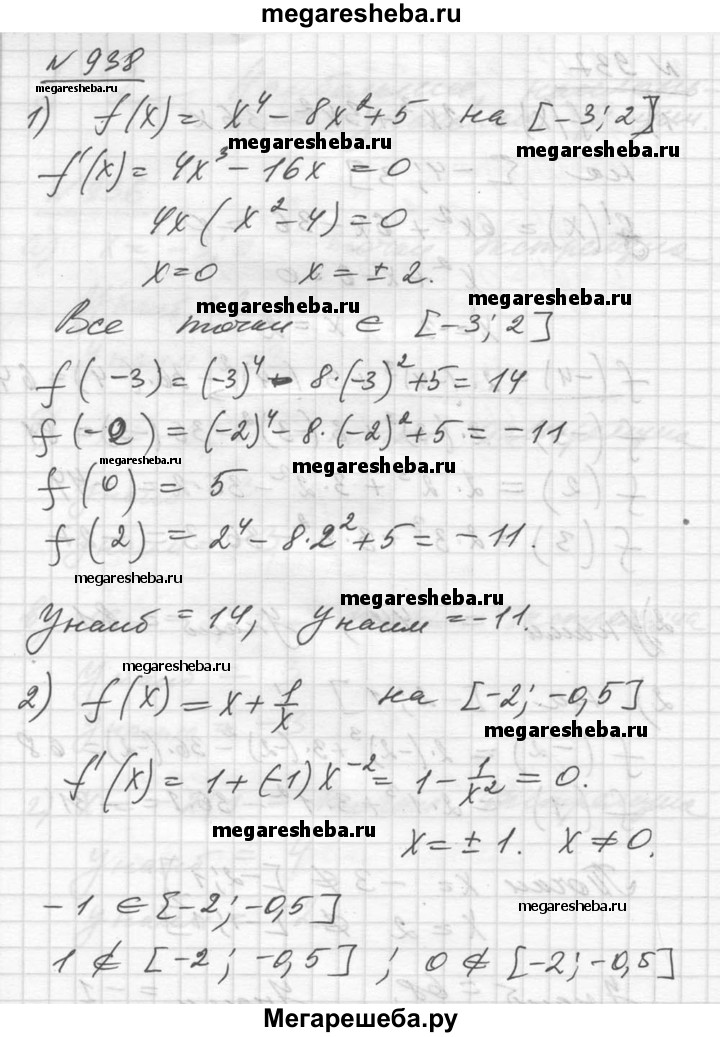 megaresheba.ru
N 938
megaresheba.ru
1) f(x) = x⁴ - 8x² + 5 на [-3; 2]
megaresheba.ru
megaresheba.ru
f'(x) = 4x³ - 16x = 0
4x(x² - 4) = 0
x = 0 x = ± 2.
megaresheba.ru
megaresheba.ru
Все точки ∈ [-3; 2]
f(-3) = (-3)⁴ - 8·(-3)² + 5 = 14
f(-2) = (-2)⁴ - 8·(-2)² + 5 = -11
megaresheba.ru
megaresheba.ru
f(0) = 5
f(2) = 2⁴ - 8·2² + 5 = -11.
megaresheba.ru
megaresheba.ru
Унаиб = 14, Унаим = -11.
megaresheba.ru
2) f(x) = x + 1/x на [-2; -0,5]
megaresheba.ru
f'(x) = 1 + (-1)x⁻² = 1 - 1/x² = 0.
megaresheba.ru
x = ± 1. x ≠ 0.
-1 ∈ [-2; -0,5]
megaresheba.ru
1 ∉ [-2; -0,5]; 0 ∉ [-2; -0,5]
Мегарешеба.ру